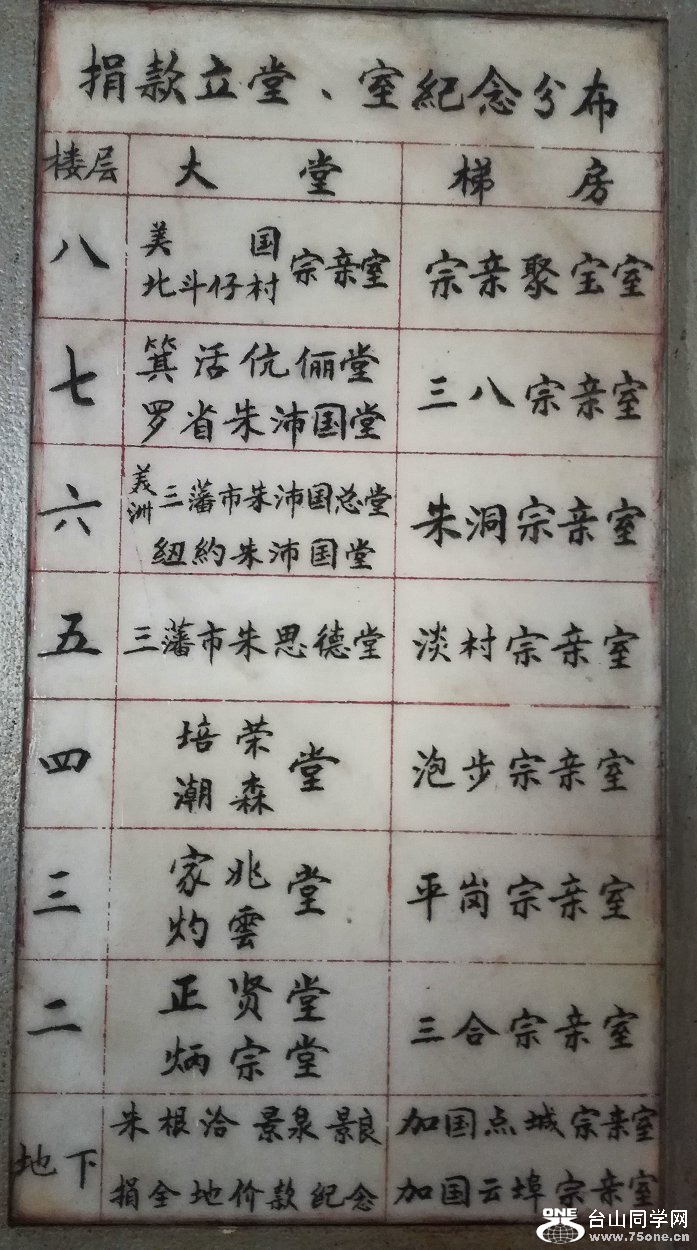 捐款立堂、室紀念分布
楼层 大堂 梯房
八 美国北斗仔村宗亲室 宗亲聚宝室
七 箕活伉俪堂 三八宗亲室
罗省朱沛国堂
六 美洲三藩市朱沛国总堂 朱洞宗亲室
纽約朱沛国堂
五 三藩市朱思德堂 淡村宗亲室
四 培荣潮森堂 泡步宗亲室
三 家兆灼雲堂 平岗宗亲室
二 正贤堂 三合宗亲室
炳宗堂
地下 朱根洽景泉景良 加国点城宗亲室
捐全地价款纪念 加国云埠宗亲室
ONE 台山同学网
www.75one.cn